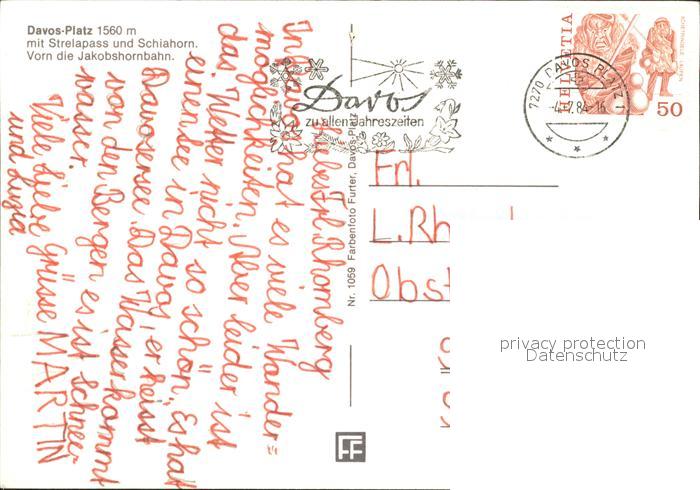 Davos-Platz 1560 m
mit Strelapass und Schiahorn.
Vorn die Jakobshornbahn.
Liebes Frl. Rhomberg
In Davos hat es viele Wander=
möglichkeiten. Aber leider ist
das Wetter nicht so schön. Es hat
einen See in Davos, er heisst
Davosersee. Das Wasser kommt
von den Bergen es ist schnee
wasser.
Viele liebe Grüsse MARTIN
und Luzia
Nr. 1059 Farbenfoto Furter, Davos-Platz
Davos
zu allen Jahreszeiten
7270 DAVOS PLATZ 1
84-16
HELVETIA
50
Frl.
L. Rh
Obst
privacy protection
Datenschutz
FF